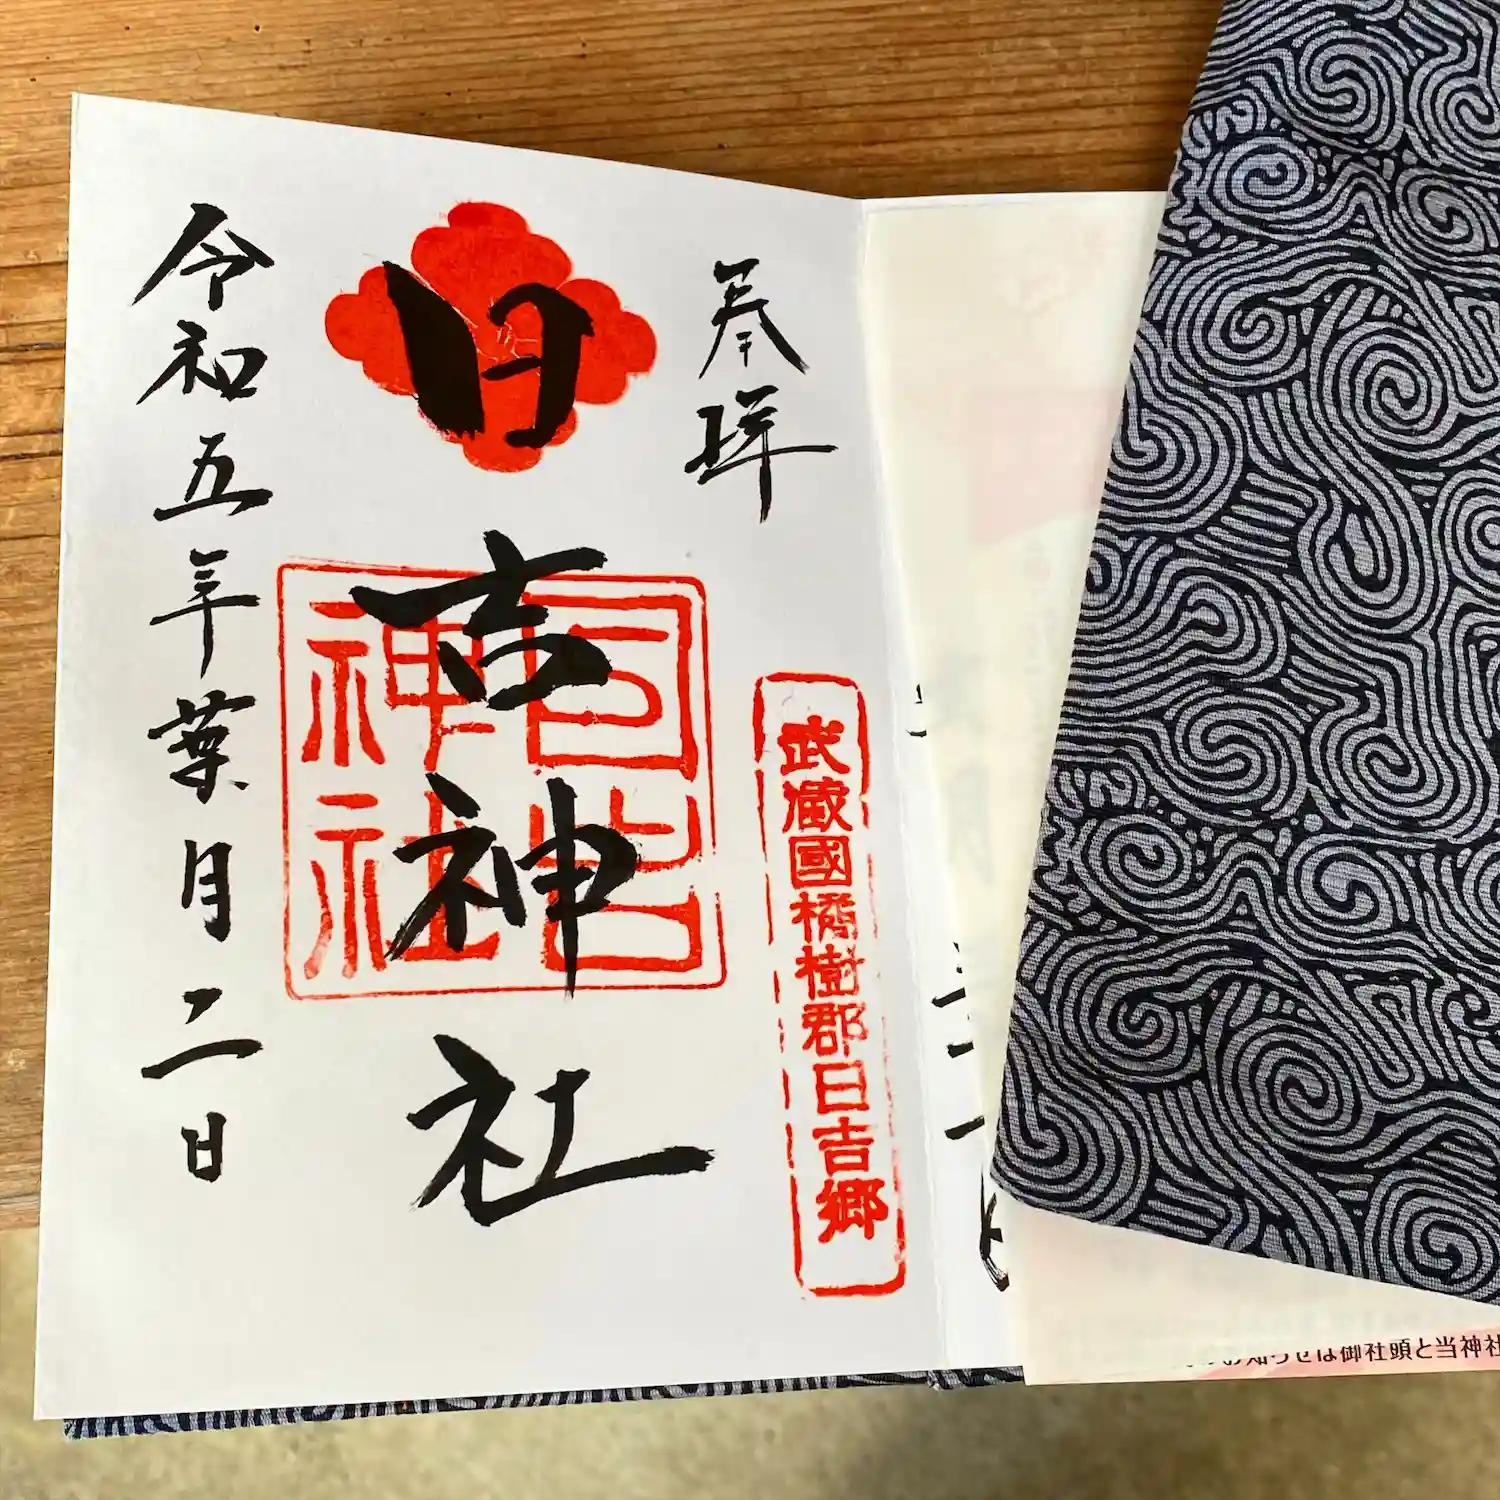 奉拝
武蔵國橘樹郡日吉郷
日吉神社
日吉神社
令和五年葉月二日
せは御社頭と当神社